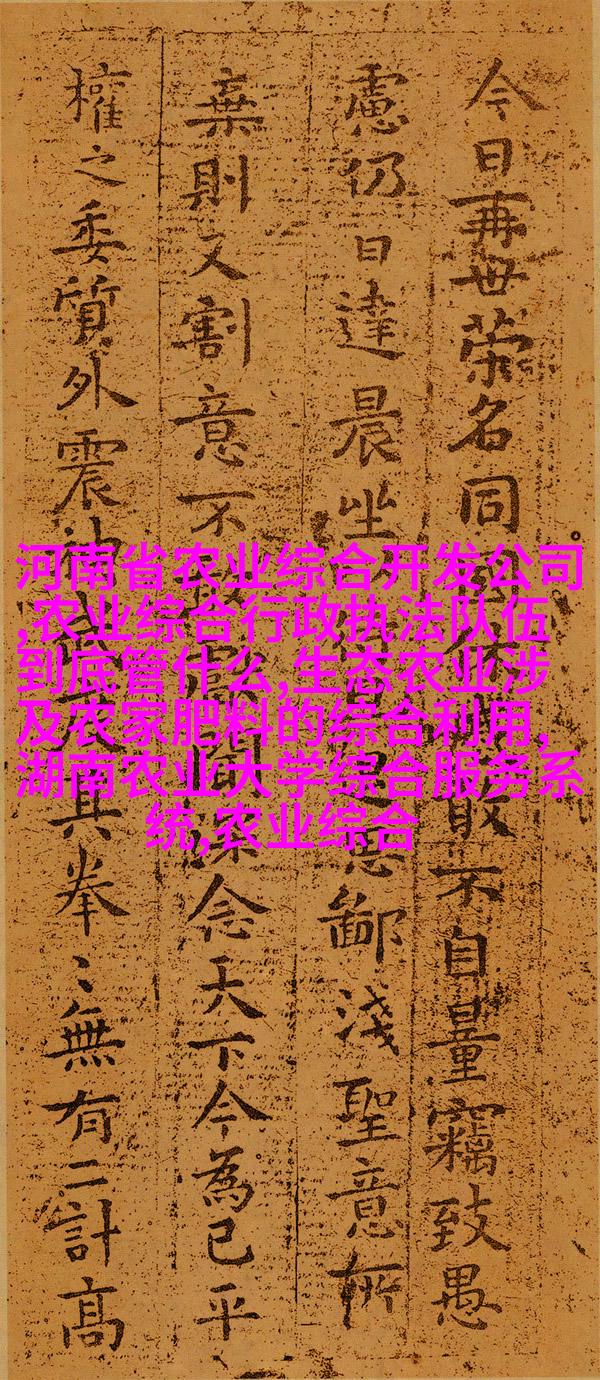 今日再世荣名同敢不自量竊致愚
慮仍日達晨坐思鄙淺聖意所
棄則又割意不聞深念天下今為已平
權之委質外震神其拳〻無有二計高
河南省农业综合开发公司
,农业综合行政执法队伍
到底管什么,生态农业涉
及农家肥料的综合利用,
湖南农业大学综合服务系
统,农业综合